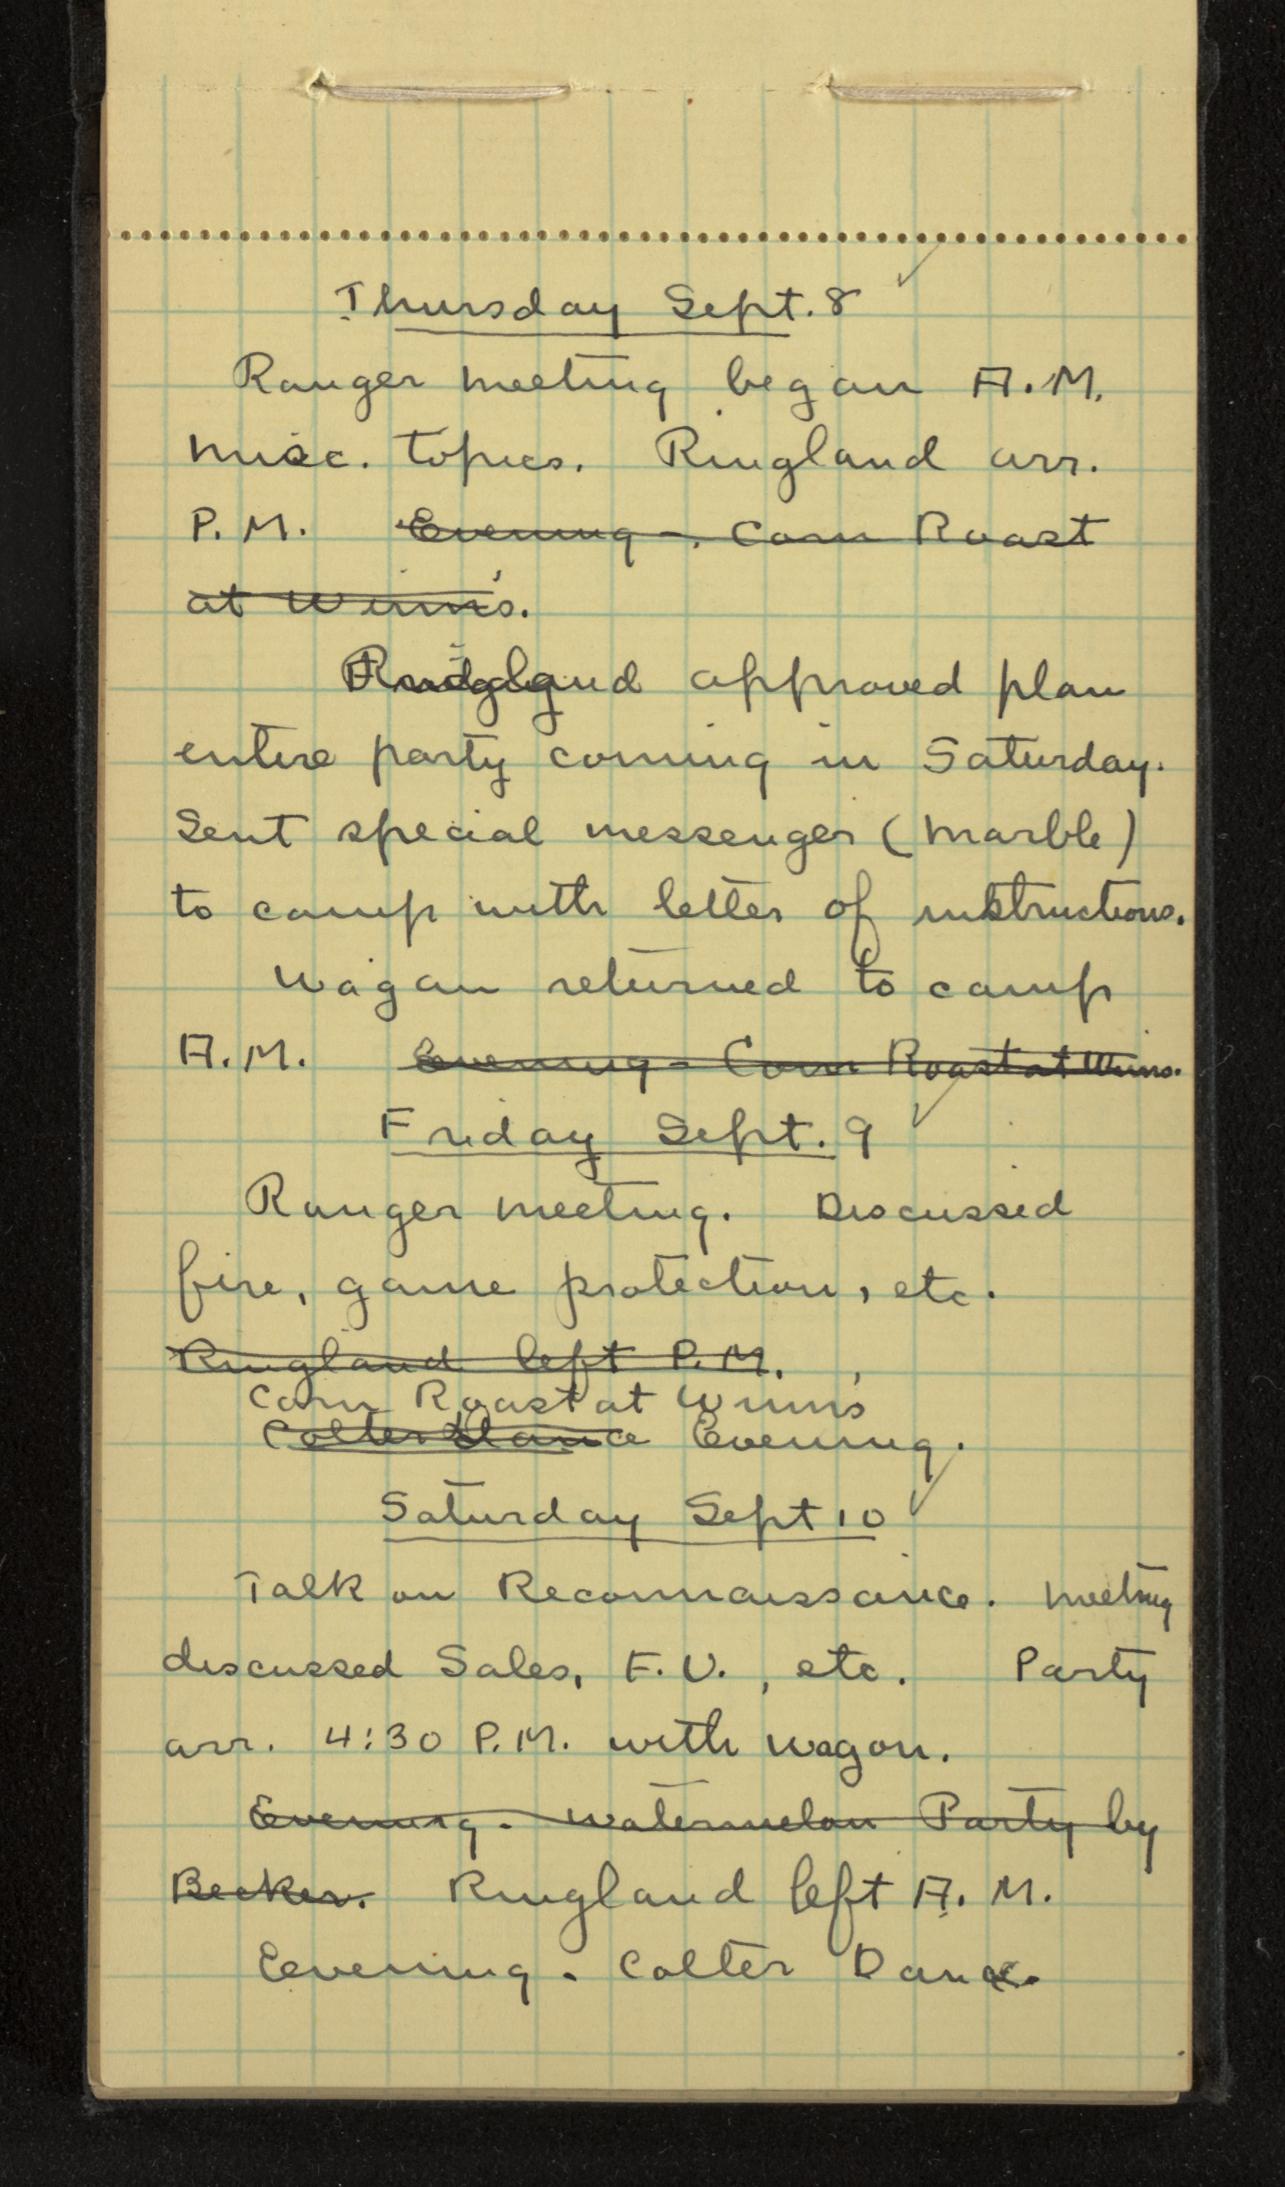 Thursday Sept. 8
Ranger meeting began A.M.
misc. topics. Ringland arr.
P.M. Evening -. Corn Roast
at Winn's.
Ringland approved plan
entire party coming in Saturday.
Sent special messenger (Marble)
to camp with letter of instructions.
Wagon returned to camp
A.M. Evening - Corn Roast at Winns.
Friday Sept. 9
Ranger meeting. Discussed
fire, game protection, etc.
Ringland left P.M.
Corn Roast at Winn's
Colter Dance Evening.
Saturday Sept 10
Talk on Reconnaissance. Meeting
discussed Sales, F.U., etc. Party
arr. 4:30 P.M. with wagon.
Evening. - Watermelon Party by
Becker. Ringland left A.M.
Evening. Colter Dance.